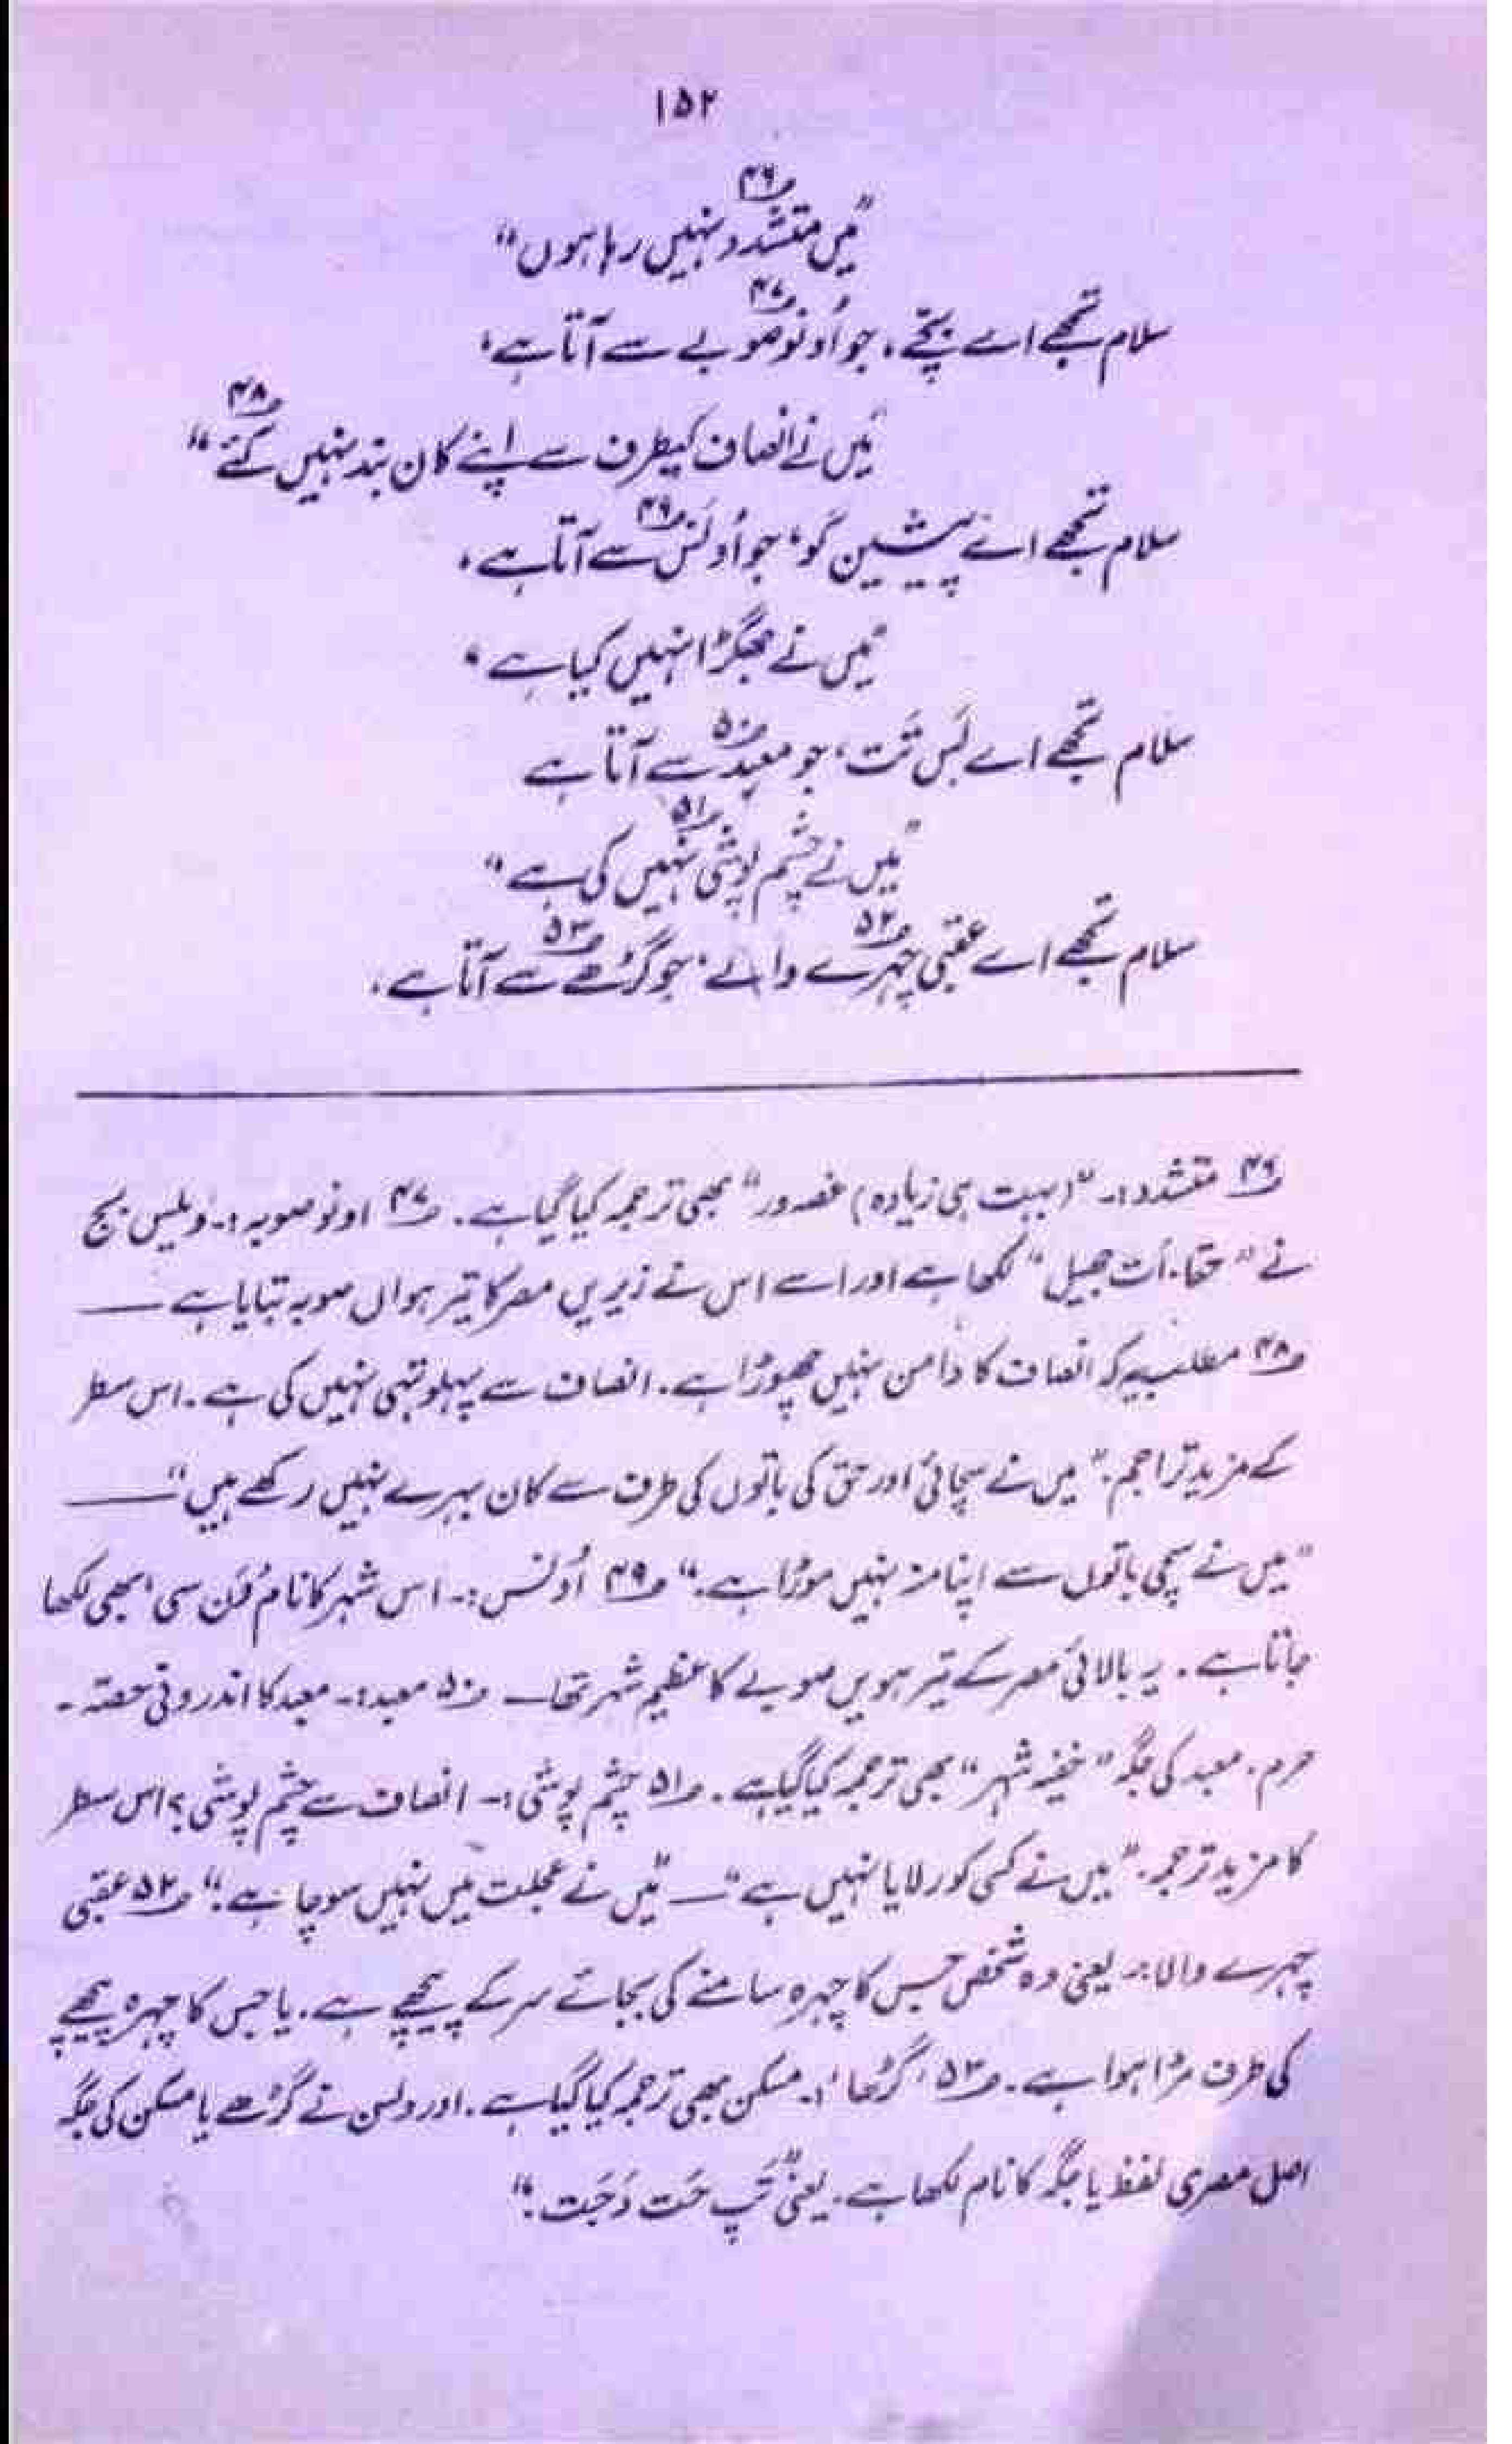 ۱۵۲
"میں متشدد۴۶ نہیں رہا ہوں"
سلام تجھے اے بچے، جو اُونو صوبے۴۷ سے آتا ہے،
"میں نے انصاف کیطرف سے اپنے کان بند نہیں کئے۴۸"
سلام تجھے اے پیشین گو، جو اُونَس۴۹ سے آتا ہے،
"میں نے جھگڑا نہیں کیا ہے"
سلام تجھے اے بَس تَت، جو معبد۵۰ سے آتا ہے
"میں نے چشم پوشی۵۱ نہیں کی ہے"
سلام تجھے اے عقبی چہرے۵۲ والے، جو گڑھے۵۳ سے آتا ہے،
۴۶ متشدد:۔ "(بہت ہی زیادہ) غصہ ور" بھی ترجمہ کیا گیا ہے۔ ۴۷ اونو صوبہ:۔ ویلس بج
نے "حقا۔اَت جھیل" لکھا ہے اور اسے اس نے زیریں مصر کا تیرہواں صوبہ بتایا ہے ــــ
۴۸ مطلب یہ کہ انصاف کا دامن نہیں چھوڑا ہے۔ انصاف سے پہلو تہی نہیں کی ہے۔ اس سطر
کے مزید تراجم۔ "میں نے سچائی اور حق کی باتوں کی طرف سے کان بہرے نہیں رکھے ہیں" ــــ
"میں نے سچی باتوں سے اپنا منہ نہیں موڑا ہے۔" ۴۹ اُونَس:۔ اس شہر کا نام 'وَن سی' بھی لکھا
جاتا ہے۔ یہ بالائی مصر کے تیرہویں صوبے کا عظیم شہر تھا ــ ۵۰ معبد:۔ معبد کا اندرونی حصہ ۔
حرم۔ معبد کی جگہ "خفیہ شہر" بھی ترجمہ کیا گیا ہے۔ ۵۱ چشم پوشی:۔ انصاف سے چشم پوشی؟ اس سطر
کا مزید ترجمہ۔ "میں نے کسی کو رلایا نہیں ہے" ــ "میں نے عجلت میں نہیں سوچا ہے۔" ۵۲ عقبی
چہرے والا:۔ یعنی وہ شخص جس کا چہرہ سامنے کی بجائے سر کے پیچھے ہے۔ یا جس کا چہرہ پیچھے
کی طرف مڑا ہوا ہے۔ ۵۳ 'گڑھا':۔ مسکن بھی ترجمہ کیا گیا ہے۔ اور ولسن نے گڑھے یا مسکن کی جگہ
اصل مصری لفظ یا جگہ کا نام لکھا ہے۔ یعنی "تَپ حَت دَجَت۔"